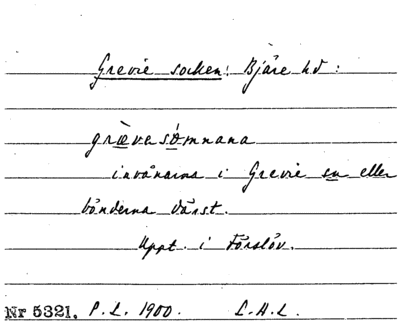 Grevie socken: Bjäre hd:
grævesómnana
invånarna i Grevie sn eller
bönderna därst.
Uppt. i Förslöv.
Nr 5321, P.L. 1900. L.H.L.